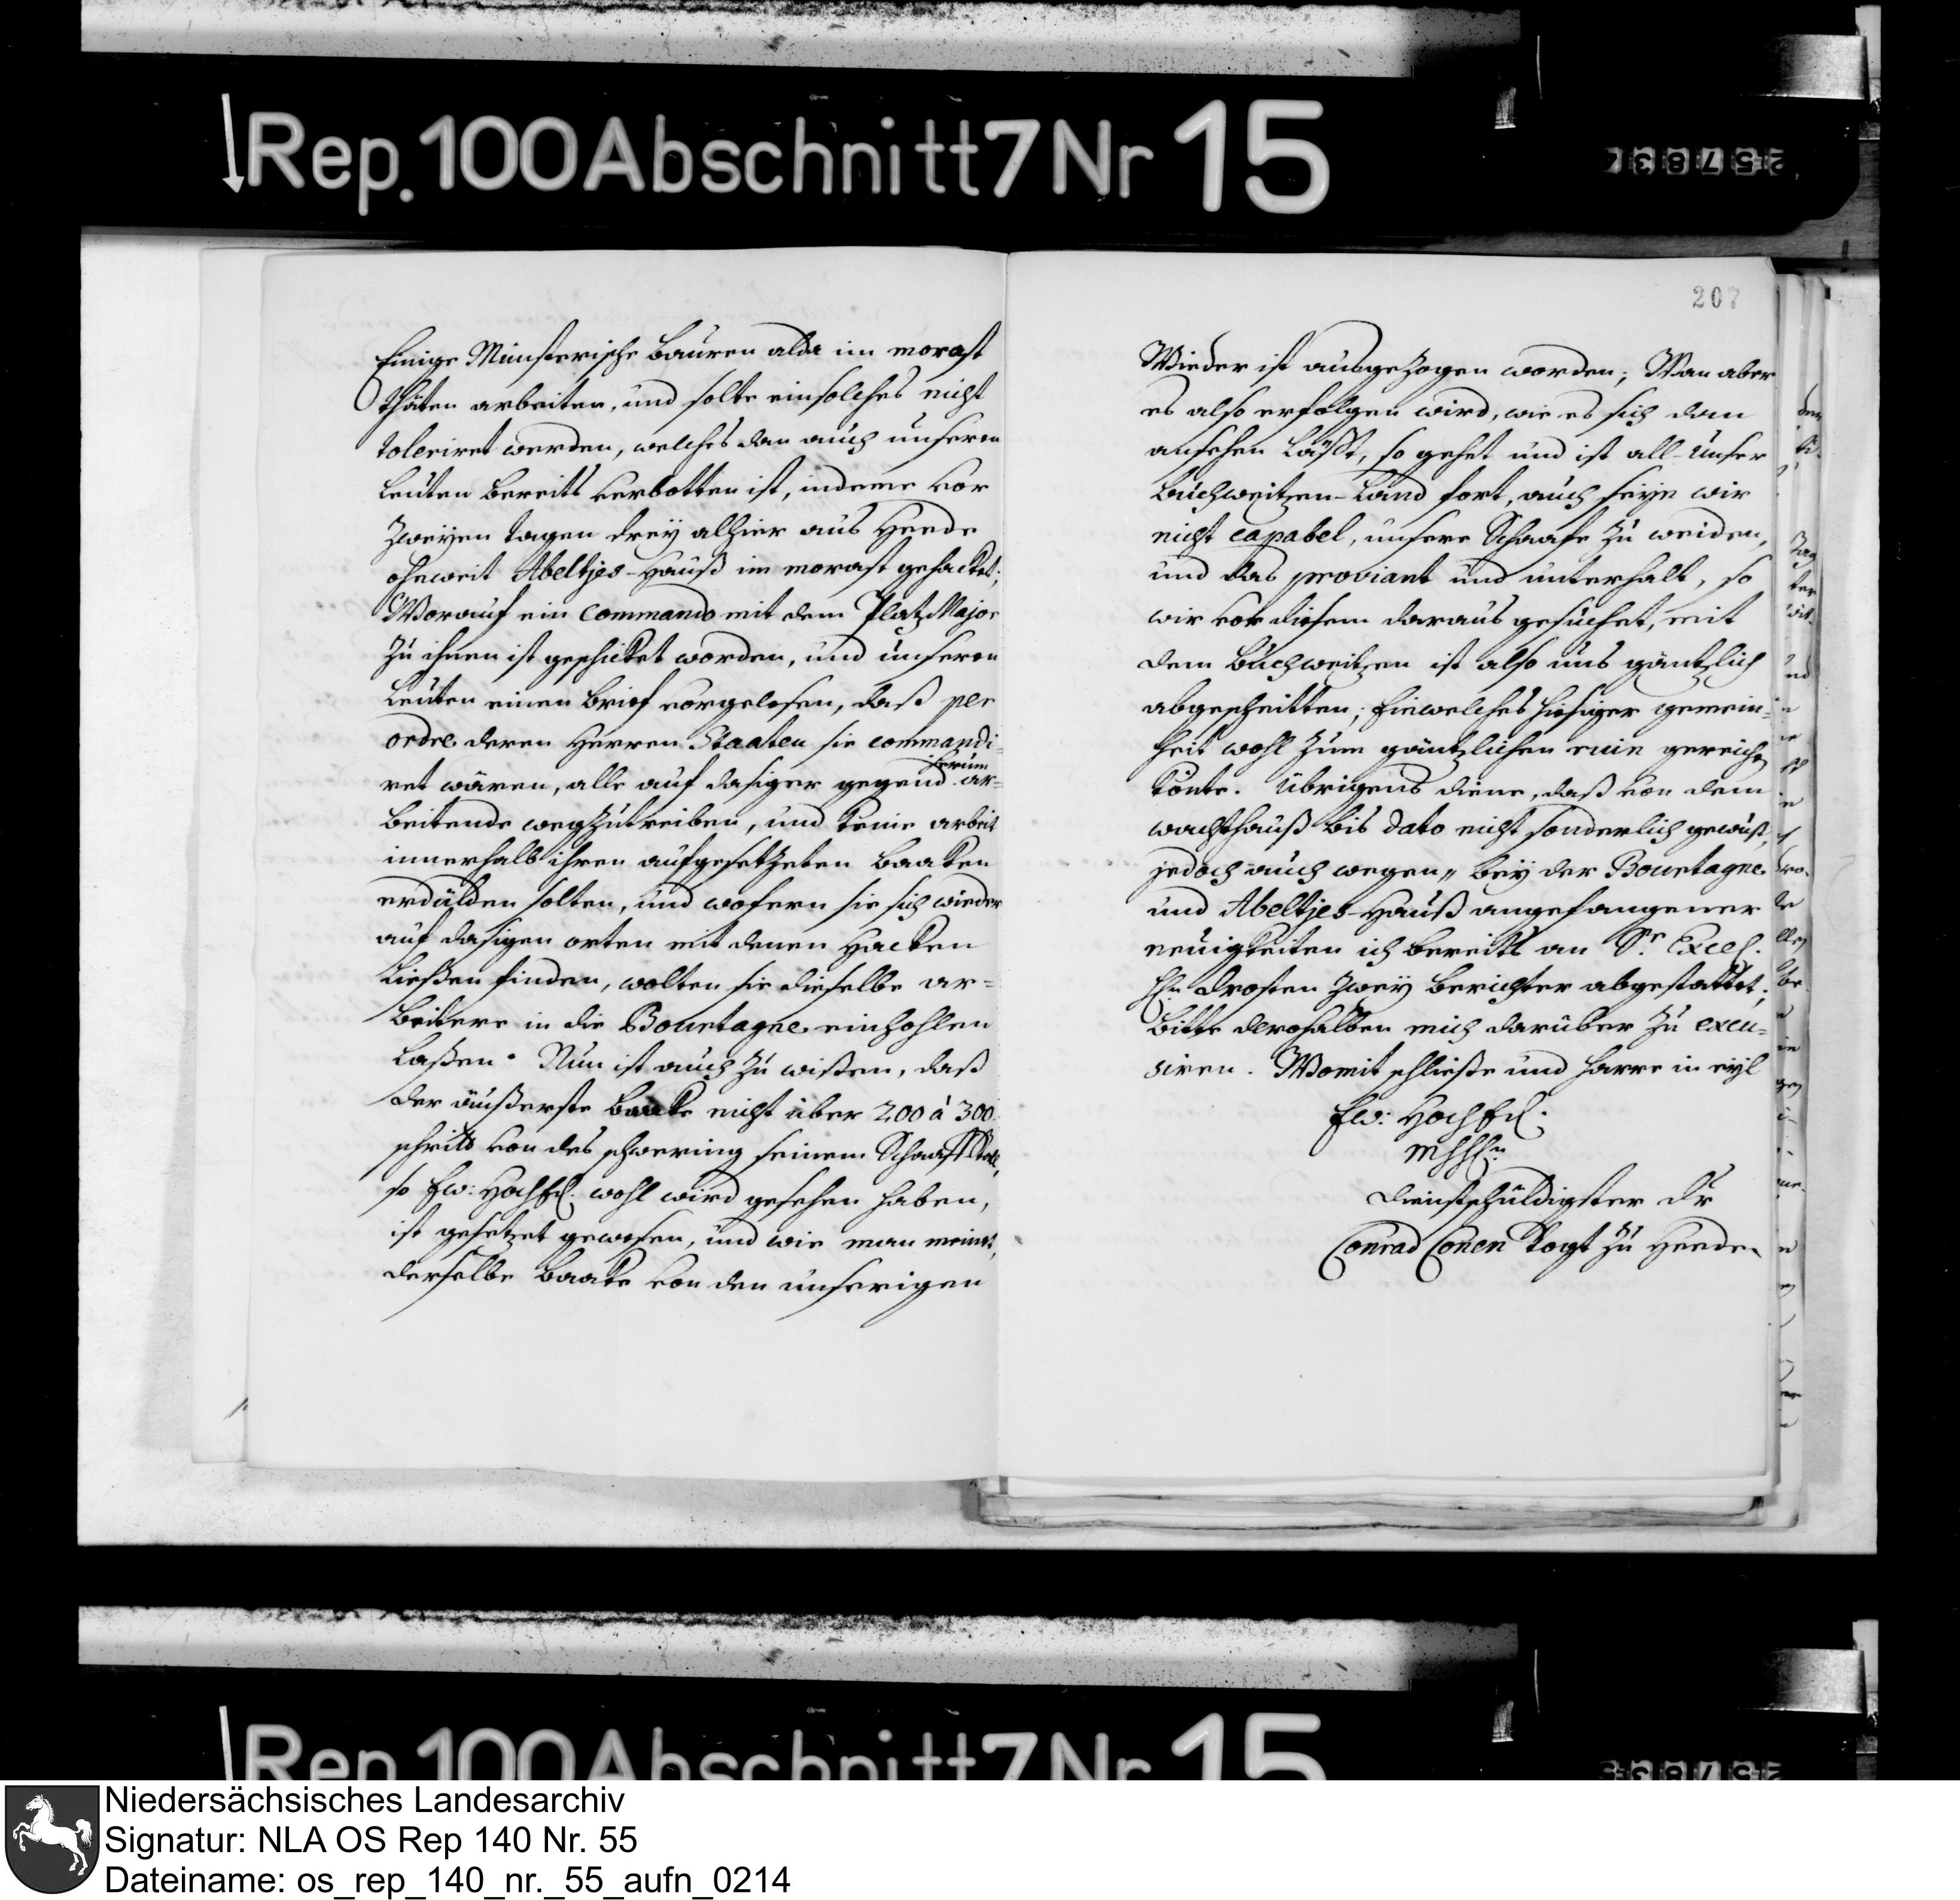 Rep. 100 Abschnitt 7 Nr 15
257837
Einige Münsterische bauren alda im morast
thäten arbeiten, und solte einsolches nicht
toleriret werden, welches dan auch unseren
leuten bereitts verbotten ist, indeme vor
zweyen tagen drey alhier aus Heede
ohnweit Abeltjes-Hauß im morast gehacket;
Worauf ein Commando mit dem Platz Major
zu ihnen ist geschicket worden, und unseren
leuten einen brief vorgelesen, daß per
ordre deren Herren Staaten sie commandi-
ret wären, alle auf dasiger gegend herum ar=
beitende wegzutreiben, und keine arbeit
innerhalb ihren aufgesetzeten baaken
erdulden solten, und wofern sie sich wieder
auf dasigen orten mit denen Hacken
ließen finden, wolten sie dieselbe ar=
beitere in die Bourtagne einhohlen
laßen. Nun ist auch zu wißen, daß
der äußerste baake nicht über 200 à 300
schritt von des schwering seinem Schaafstall,
so Ew: Hochf. wohl wird gesehen haben,
ist gesetzet gewesen, und wie man meinet,
derselbe baake von den unserigen
207
Wieder ist ausgezogen worden; Wan aber
es also erfolgen wird, wie es sich dan
ansehen läßt, so gehet und ist all unser
buchweitzen-land fort, auch seyn wir
nicht capabel, unsere Schaafe zu weiden,
und das proviant und unterhalt, so
wir vor diesem daraus gesuchet, mit
dem buchweitzen ist also uns gäntzlich
abgeschnitten; Einwelches hiesiger gemein=
heit wohl zum gäntzlichen ruin gereichen
könte. Übrigens diene, daß von dem
wachthauß bis dato nicht sonderlich gewust,
jedoch auch wegen bey der Bourtagne
und Abeltjes-Hauß angefangener
neuigkeiten ich bereits an Sr Excel.
Hn Drosten zwey berichter abgestattet;
bitte derohalben mich darüber zu excu=
siren. Womit schließe und harre in eyl
Ew: Hochf.
dienstschuldigster Dr
Conrad Conen Vogt zu Heede
Rep. 100 Abschnitt 7 Nr 15
Niedersächsisches Landesarchiv
Signatur: NLA OS Rep 140 Nr. 55
Dateiname: os_rep_140_nr._55_aufn_0214